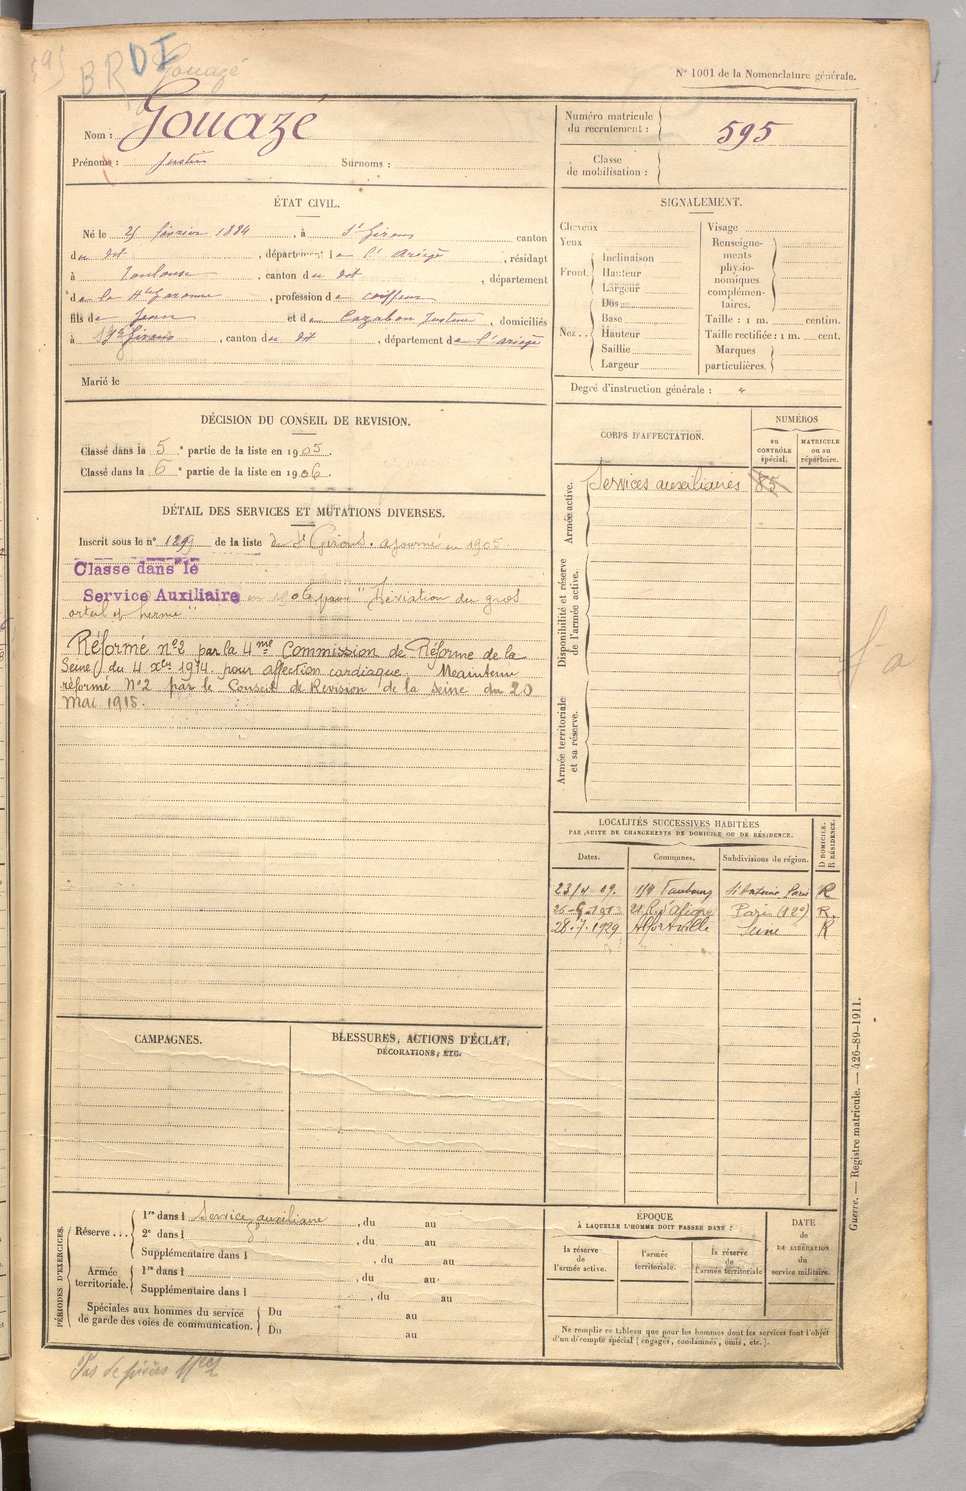 595 BRDI Gouazé
N° 1001 de la Nomenclature générale.
Nom : Gouazé
Prénoms : Justin Surnoms :
Numéro matricule du recrutement : 595
Classe de mobilisation :
ÉTAT CIVIL.
Né le 25 février 1884, à St Girons canton
du dit, département de l'Ariège, résidant
à Toulouse, canton du dit, département
de la Hte Garonne, profession de coiffeur
fils de Jean et de Cazabon Justine, domiciliés
à St Girons, canton du dit, département de l'ariège
Marié le
SIGNALEMENT.
Cheveux
Yeux
Front. Inclinaison
Hauteur
Largeur
Nez.. Dos
Base
Hauteur
Saillie
Largeur
Visage
Renseignements physionomiques complémentaires.
Taille : 1 m. centim.
Taille rectifiée : 1 m. cent.
Marques particulières.
Degré d'instruction générale : "
DÉCISION DU CONSEIL DE REVISION.
Classé dans la 5e partie de la liste en 1905.
Classé dans la 6e partie de la liste en 1906.
DÉTAIL DES SERVICES ET MUTATIONS DIVERSES.
Inscrit sous le n° 1299 de la liste de St Girons. ajourné en 1905.
Classe dans le
Service Auxiliaire en 1906 pour "Déviation du gros
orteil et hernie"
Réformé n°2 par la 4me Commission de Réforme de la
Seine du 4 Xbre 1914. pour affection cardiaque. Maintenu
réformé N°2 par le Conseil de Revision de la Seine du 20
mai 1915.
CORPS D'AFFECTATION.
NUMÉROS
au CONTRÔLE spécial.
MATRICULE ou au répertoire.
Armée active.
Services auxiliaires 85
Disponibilité et réserve de l'armée active.
Armée territoriale et sa réserve.
LOCALITÉS SUCCESSIVES HABITÉES
PAR SUITE DE CHANGEMENTS DE DOMICILE OU DE RÉSIDENCE.
Dates. Communes. Subdivisions de région. D DOMICILE. R RÉSIDENCE.
23/4 09. 114 Faubourg St Antoine Paris R
21 R. d'Aligre Paris (12e) R.
28.7.1929 Alfortville Seine R
CAMPAGNES.
BLESSURES, ACTIONS D'ÉCLAT,
DÉCORATIONS, ETC.
PÉRIODES D'EXERCICES.
Réserve... 1re dans l Service auxiliaire, du au
2e dans l, du au
Supplémentaire dans l, du au
Armée territoriale. 1re dans l, du au
Supplémentaire dans l, du au
Spéciales aux hommes du service
de garde des voies de communication. Du au
Du au
ÉPOQUE
À LAQUELLE L'HOMME DOIT PASSER DANS :
la réserve de l'armée active.
l'armée territoriale.
la réserve de l'armée territoriale
DATE de LA LIBÉRATION du service militaire.
Ne remplir ce tableau que pour les hommes dont les services font l'objet
d'un décompte spécial (engagés, condamnés, omis, etc.).
Guerre. — Registre matricule. — 426-89-1911.
Pas de pièces